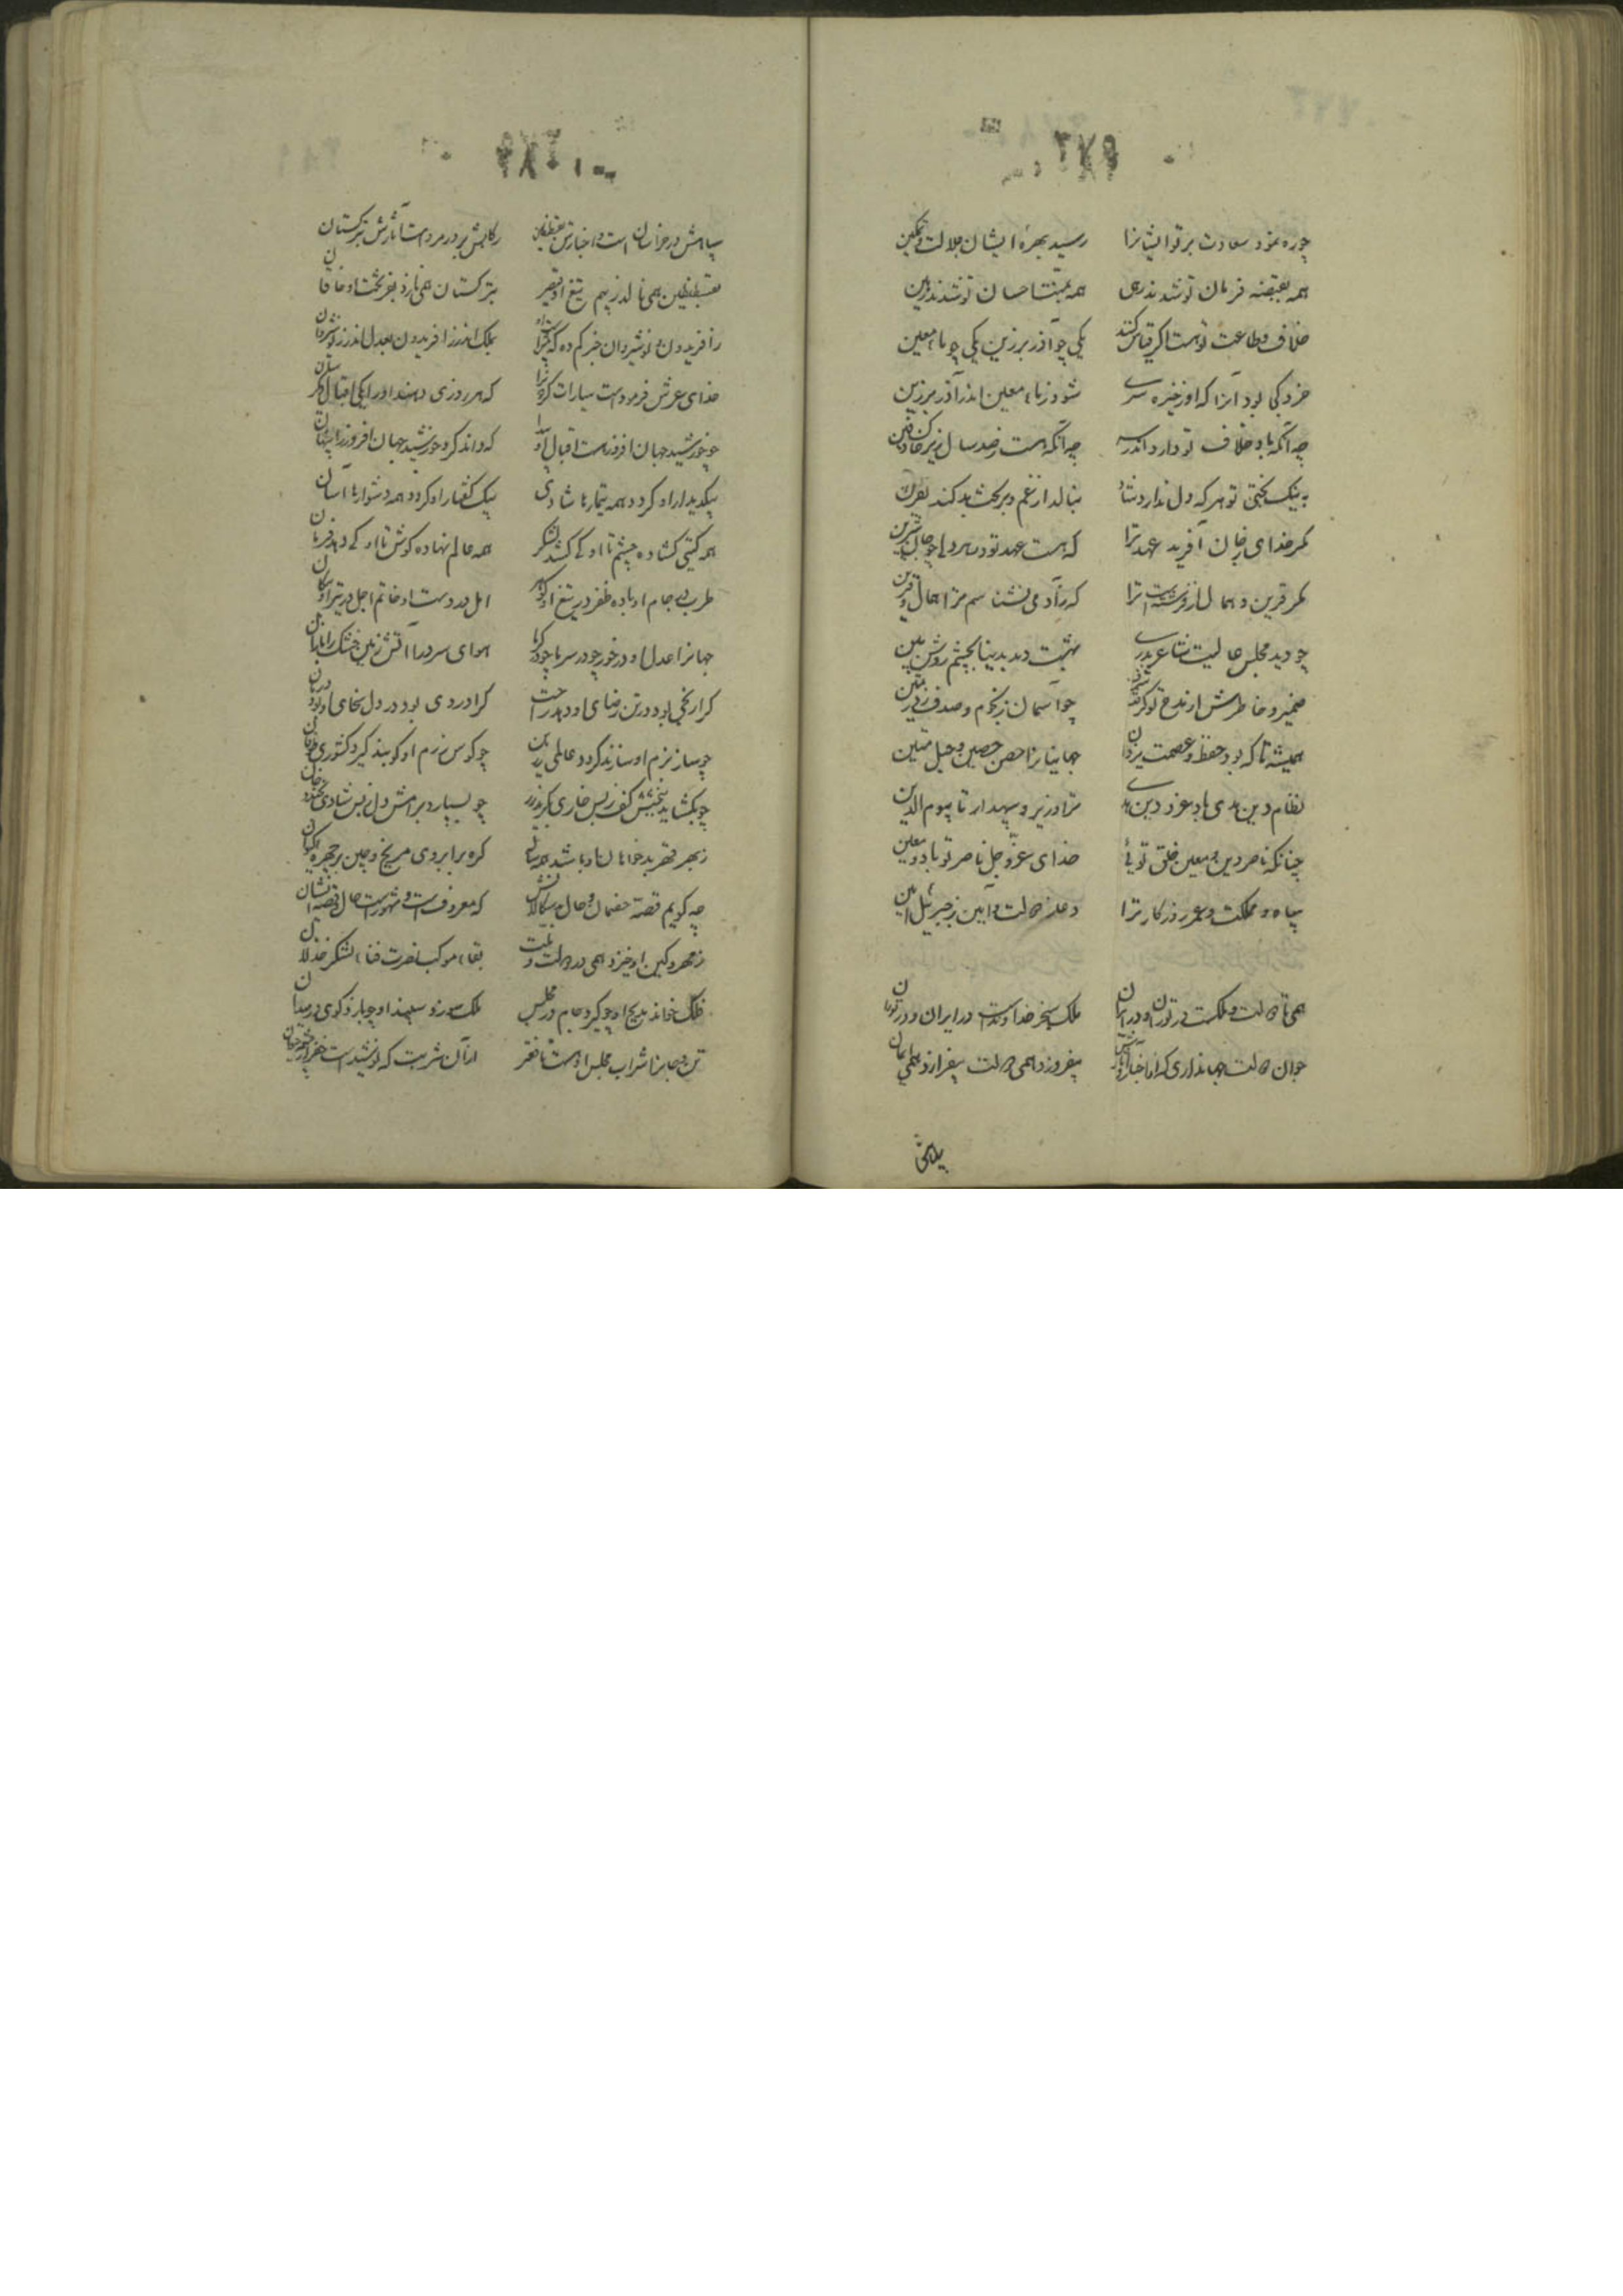 ۲۷۹
چو ره نمود سعادت بر تو ایشانرا رسید بهرهٔ ایشان جلالت و تمکین
همه بقبضه فرمان تو شدند رهی همه بمنت احسان تو شدند رهین
خلاف و طاعت تو هست اگر قیاس کنند یکی چو آذر برزین یکی چو ماء معین
خرد کی بود آنرا که او ز خیره سری شود ز ماء معین اندر آذر برزین
چه آنکه باد خلاف تو دارد اندر سر چه آنکه هست ز صد سال زیر خاک دفین
به نیک بختی تو هر که دل ندارد شاد بنالد از غم و بر بخت بد کند نفرین
مگر خدای ز جان آفرید عهد ترا که هست عهد تو در هر دلی چو جان شیرین
مگر قرین و همال از فرشته است ترا که ز آدمی نشناسم ترا همال و قرین
چو دید مجلس عالیت شاعر بدری بهشت دید بدنیا بچشم روشن بین
ضمیر و خاطرش از مدح تو گرفت شرف چو آسمان ز نجوم و صدف ز در ثمین
همیشه تا که بود حفظ و عصمت یزدان جهانیانرا حصن حصین و حبل متین
نظام دین هدی باد عز دین هدی ترا وزیر و سپهدار تا بیوم الدین
چنانکه ناصر دین و معین خلق توئی خدای عز و جل ناصر تو باد و معین
سپاه و مملکت و عمر و روزگار ترا دعا ز دولت و آمین ز جبرئیل امین
همی تا دولت و ملکت در توران و در ایران ملک سنجر خداوندست در ایران و در توران
جوان دولت جهانداری که از اخبار و آثارش بیفروزد همی دولت بیفرازد همی ایمان
سپاهش
سپاهش در خراسان است و اخبارش بقسطنطین رکابش بر در مرو است آثارش بترکستان
بقسطنطین همی نالد ز بیم تیغ او قیصر بترکستان همی نازد بفر بخت او خاقان
ز افریدون و نوشیروان خبر کم ده که بیش است او بملک اندر ز افریدون بعدل اندر ز نوشروان
خدای عرش فرمودست سیارات گردون را که هر روزی دهند او را یکی اقبال دیگر سان
چو خورشید جهان افروز هست اقبال او پیدا که داند کرد خورشید جهان افروز را پنهان
بیک دیدار او گردد همه تیمارها شادی بیک گفتار او گردد همه دشوارها آسان
همه گیتی گشاده چشم تا او کی کشد لشکر همه عالم نهاده گوش تا او کی دهد فرمان
طرب در جام او باده ظفر در تیغ او گوهر امل در دست او خاتم اجل در تیر او پیکان
جهانرا عدل او در خور چو در سرما چو در گرما هوای سرد را آتش زمین خشک را باران
کرا رنجی بود در تن رضای او دهد راحت کرا دردی بود در دل سخای او بود درمان
چو ساز بزم او سازند گردد عالمی پر زر چو کوس رزم او کوبند گیرد کشوری طوفان
چو بگشاید ببخشش کف ز بس خواری بگرید زر چو بسپارد برامش دل ز بس شادی بخندد جان
ز بهر قهر بدخواهان او باشد همه ساله گره بر ابروی مریخ و چین بر چهره کیوان
چه گویم قصه خصمان و حال بد سگالانش که معروف است و مشهور است حال و قصه ایشان
ز مهر و کین او خیزد همی در دولت و ملت بقاء موکب نصرت فناء لشکر خذلان
فلک خواند مدیح او چو گیرد جام در مجلس ملک سوزد سپند او چو بازد گوی در میدان
تن و جانرا شراب مجلس او هست نافع تر از آن شربت که نوشیدست خضر از چشمه حیوان